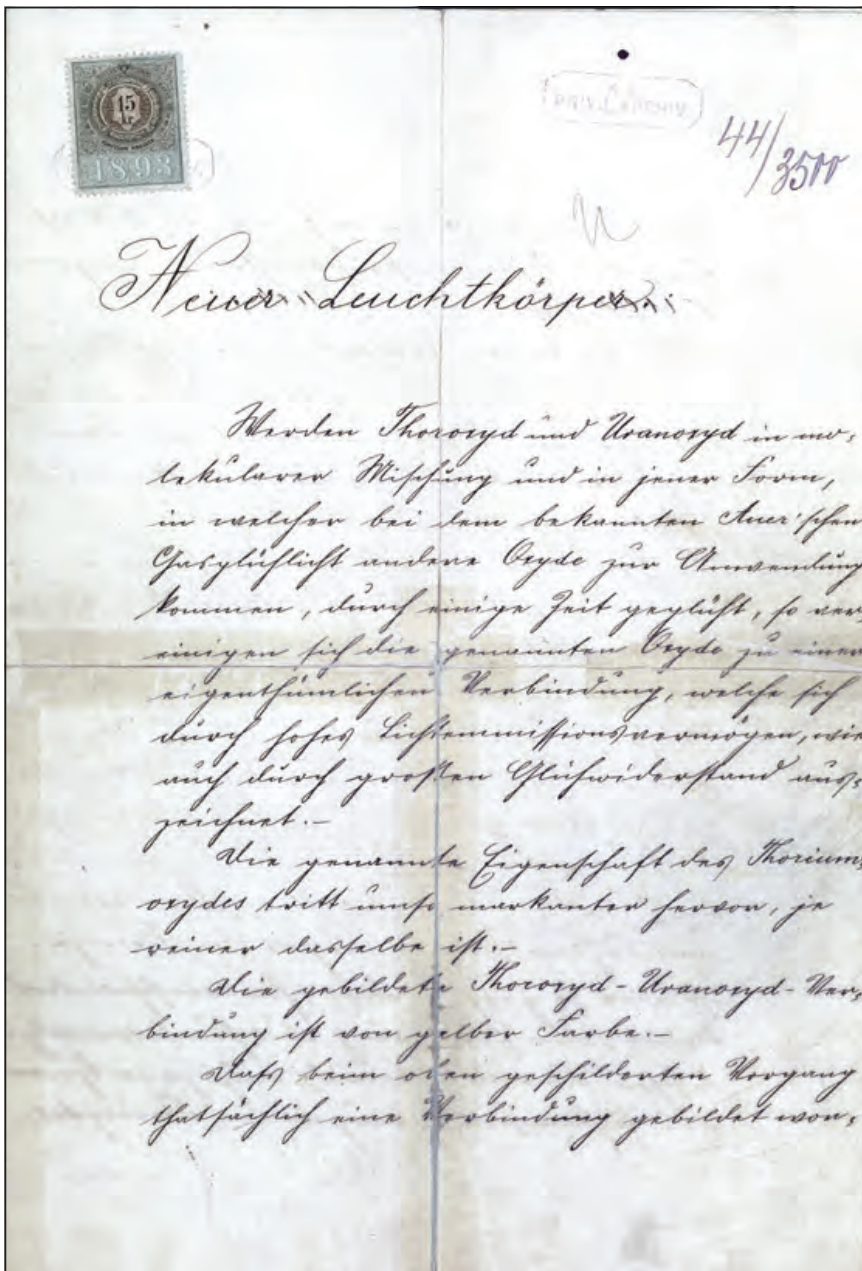 15
kr.
1893
PRIV. C. ARCHIV
44/3500
Neuer Leuchtkörper.
Werden Thoroxyd und Uranoxyd in mo-
lekularer Mischung und in jener Form,
in welcher bei dem bekannten Auer'schen
Gasglühlicht andere Oxyde zur Anwendung
kommen, durch einige Zeit geglüht, so ver-
einigen sich die genannten Oxyde zu einer
eigenthümlichen Verbindung, welche sich
durch hohes Lichtemmissionsvermögen, wie
auch durch großen Glühwiderstand aus-
zeichnet.–
Die genannte Eigenschaft des Thorium-
oxydes tritt umso markanter hervor, je
reiner dasselbe ist.–
Die gebildete Thoroxyd-Uranoxyd-Ver-
bindung ist von gelber Farbe.–
Dafs beim oben geschilderten Vorgang
thatsächlich eine Verbindung gebildet wor-